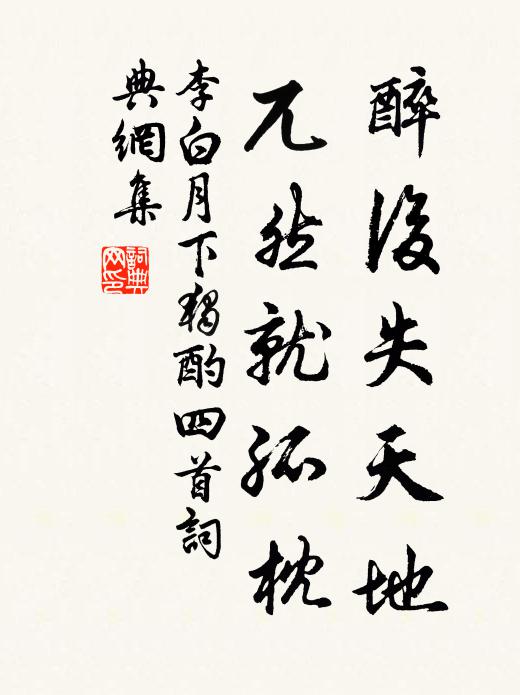 醉後失天地
兀然就孤枕
李白月下獨酌四首詞
典網集
詞典网印